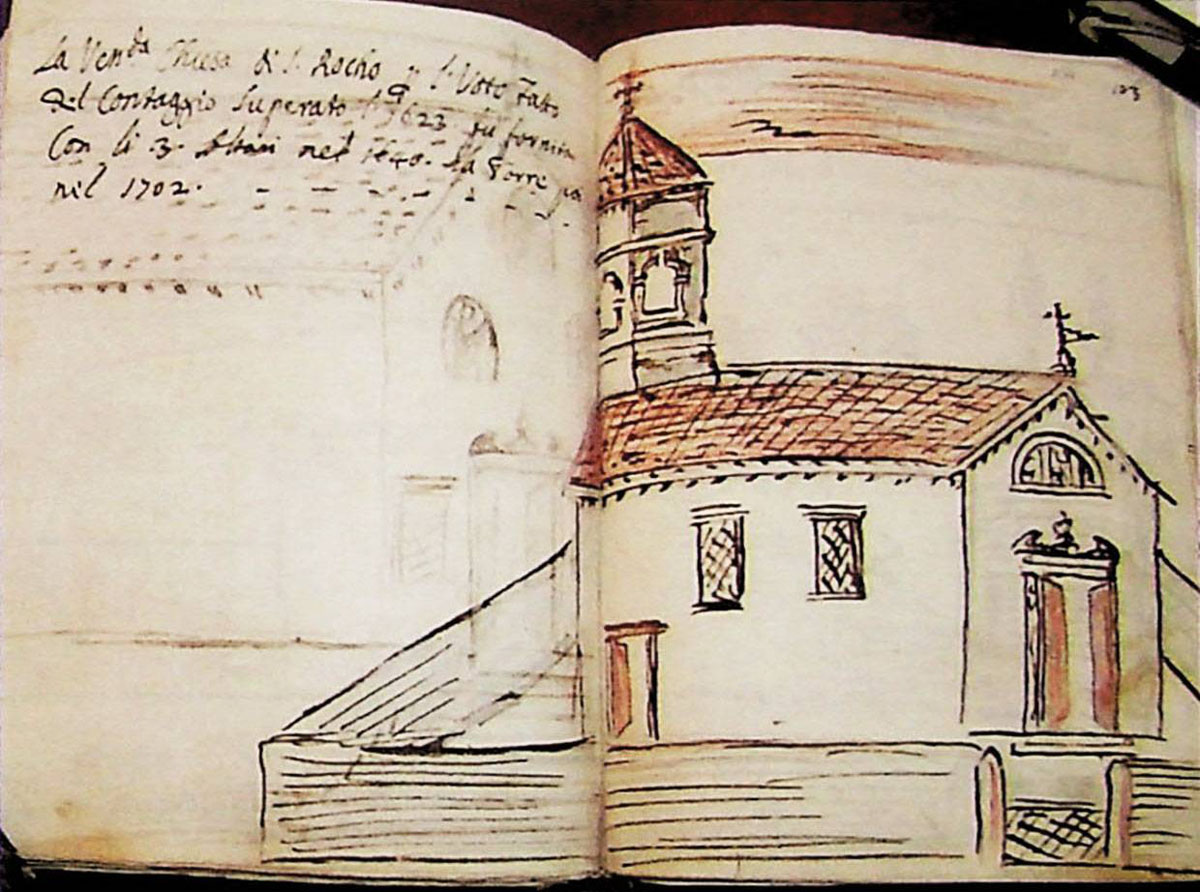 La Ven.da Chiesa di S. Rocho p. l'Voto fatto
del Contaggio Superato l' 1623 fu fornita
Con li 3. Altari nel 1640. La Torre poi
nel 1702.
123